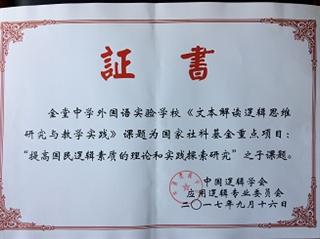 証書
金堂中学外国语实验学校《文本解读逻辑思维
研究与教学实践》课题为国家社科基金重点项目：
“提高国民逻辑素质的理论和实践探索研究”之子课题。
中国逻辑学会
应用逻辑专业委员会
二〇一七年九月十六日